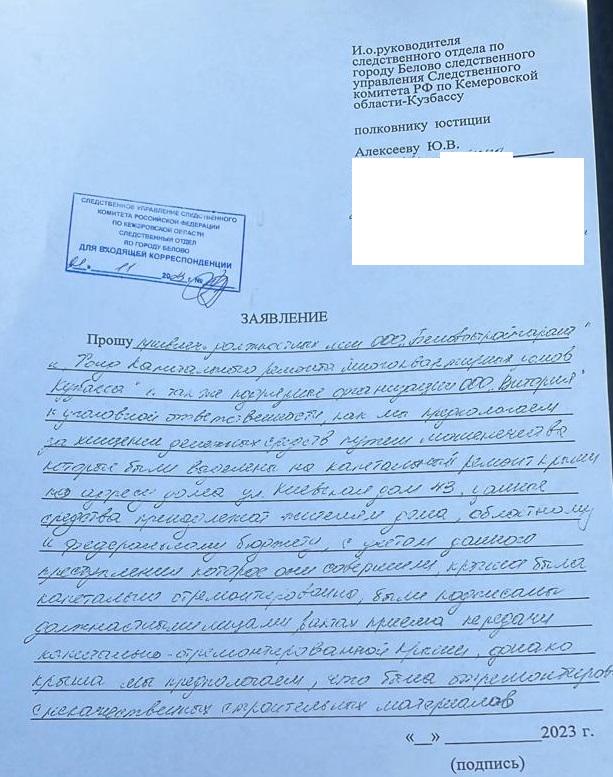 И.о.руководителя
следственного отдела по
городу Белово следственного
управления Следственного
комитета РФ по Кемеровской
области-Кузбассу
полковнику юстиции
Алексееву Ю.В.
СЛЕДСТВЕННОЕ УПРАВЛЕНИЕ СЛЕДСТВЕННОГО
КОМИТЕТА РОССИЙСКОЙ ФЕДЕРАЦИИ
ПО КЕМЕРОВСКОЙ ОБЛАСТИ
СЛЕДСТВЕННЫЙ ОТДЕЛ
ПО ГОРОДУ БЕЛОВО
ДЛЯ ВХОДЯЩЕЙ КОРРЕСПОНДЕНЦИИ
11 2023 г. №
ЗАЯВЛЕНИЕ
Прошу должностных лиц ООО "Беловостройгарант"
и "Фонд капитального ремонта многоквартирных домов
Кузбасса" и также подрядные организации ООО "Витория"
к уголовной ответственности, как мы предпологаем
за хищение денежных средств путем мошеничества
которые были выделены на капетальный ремонт крыши
по адресу дома ул. Киевская дом 43, данные
средства принадлежат жителям дома, областному
и федеральному бюджету, с учетом данного
преступления которое они совершили, крыша была
капетально отремонтированна, были подписаны
должностными лицами в актах приема передачи
капетально-отремонтированной крыши, однако
крыша мы предпологаем, что была отремонтиров
с некачественных строительных материалов
«__» __________2023 г.
(подпись)